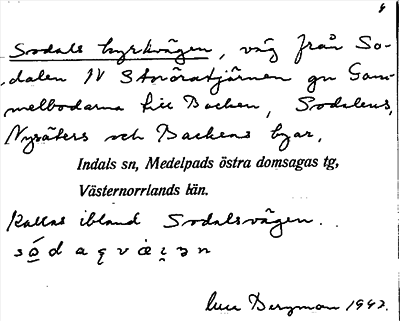 Sodals byrkvägen, väg från So-
dalen N Storöratjärnen gm Gam-
melbodarna till Backen, Sodalens,
Nysäters och Backens byar,
Indals sn, Medelpads östra domsagas tg,
Västernorrlands län.
Kallas ibland Sodalsvägen.
Bergman 1942.